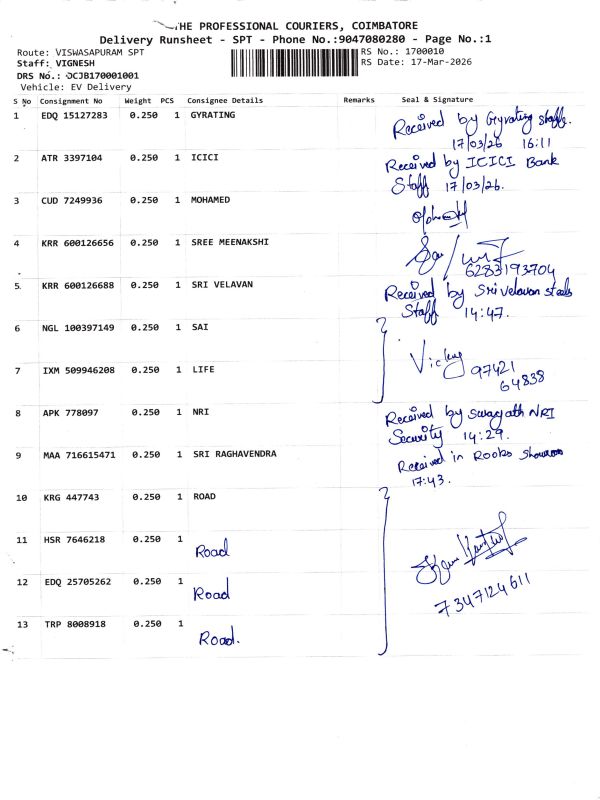 THE PROFESSIONAL COURIERS, COIMBATORE
Delivery Runsheet - SPT - Phone No.:9047080280 - Page No.:1
Route: VISWASAPURAM SPT RS No.: 1700010
Staff: VIGNESH RS Date: 17-Mar-2026
DRS No.: OCJB170001001
Vehicle: EV Delivery
S No Consignment No Weight PCS Consignee Details Remarks Seal & Signature
1 EDQ 15127283 0.250 1 GYRATING Received by Gyrating staffs.
17/03/26 16:11
2 ATR 3397104 0.250 1 ICICI Received by ICICI Bank
Staff 17/03/26.
3 CUD 7249936 0.250 1 MOHAMED
4 KRR 600126656 0.250 1 SREE MEENAKSHI
6283193704
5 KRR 600126688 0.250 1 SRI VELAVAN Received by Sri velavan steels
Staff 14:47.
6 NGL 100397149 0.250 1 SAI
Vicky 97421
64838
7 IXM 509946208 0.250 1 LIFE
8 APK 778097 0.250 1 NRI Received by swagath NRI
Security 14:29.
9 MAA 716615471 0.250 1 SRI RAGHAVENDRA Received in Rooks showroom
17:43.
10 KRG 447743 0.250 1 ROAD
11 HSR 7646218 0.250 1 Road
12 EDQ 25705262 0.250 1 Road
7347124611
13 TRP 8008918 0.250 1 Road.